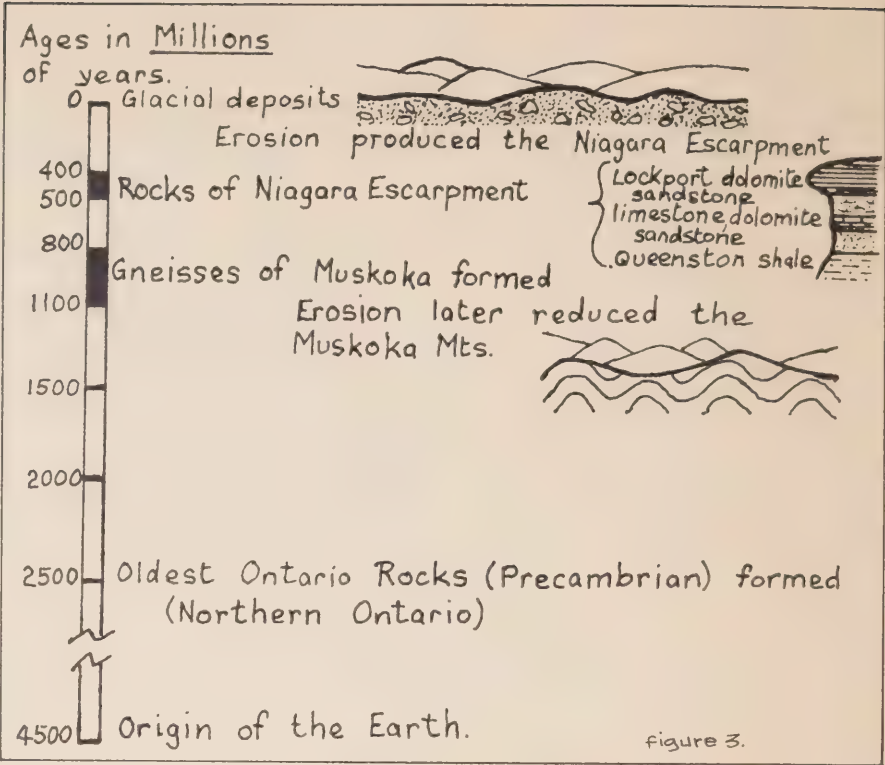 Ages in Millions
of years.
0 Glacial deposits
Erosion produced the Niagara Escarpment
400
500 Rocks of Niagara Escarpment
Lockport dolomite
sandstone
limestone dolomite
sandstone
Queenston shale
800
Gneisses of Muskoka formed
1100
Erosion later reduced the
Muskoka Mts.
1500
2000
2500 Oldest Ontario Rocks (Precambrian) formed
(Northern Ontario)
4500 Origin of the Earth.
figure 3.